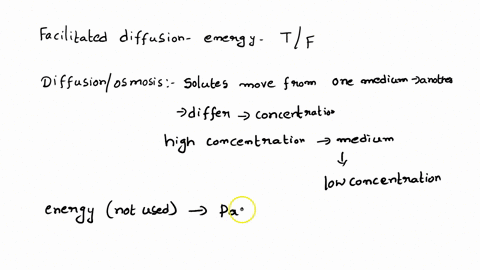 Facilitated diffusion- energy- T/F
Diffusion/osmosis:- Solutes move from one medium→another
→differ → concentration
high concentration → medium
↓
low concentration
energy (not used) → Pa